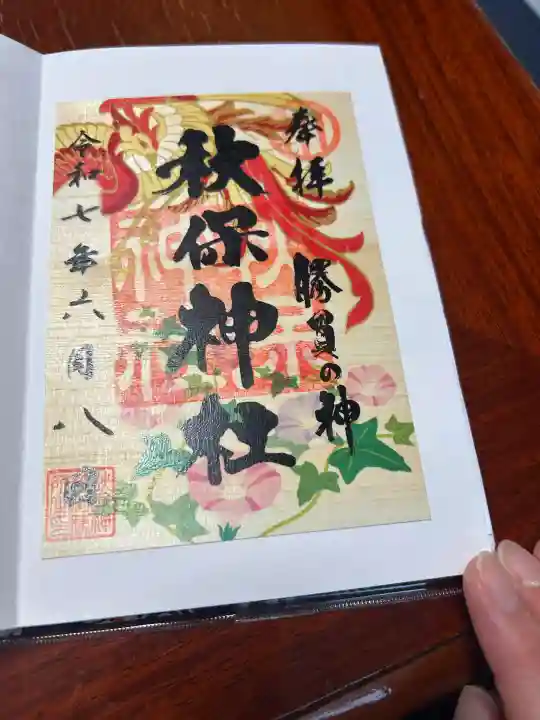 奉拝
勝負の神
秋保神社
令和七年六月八日